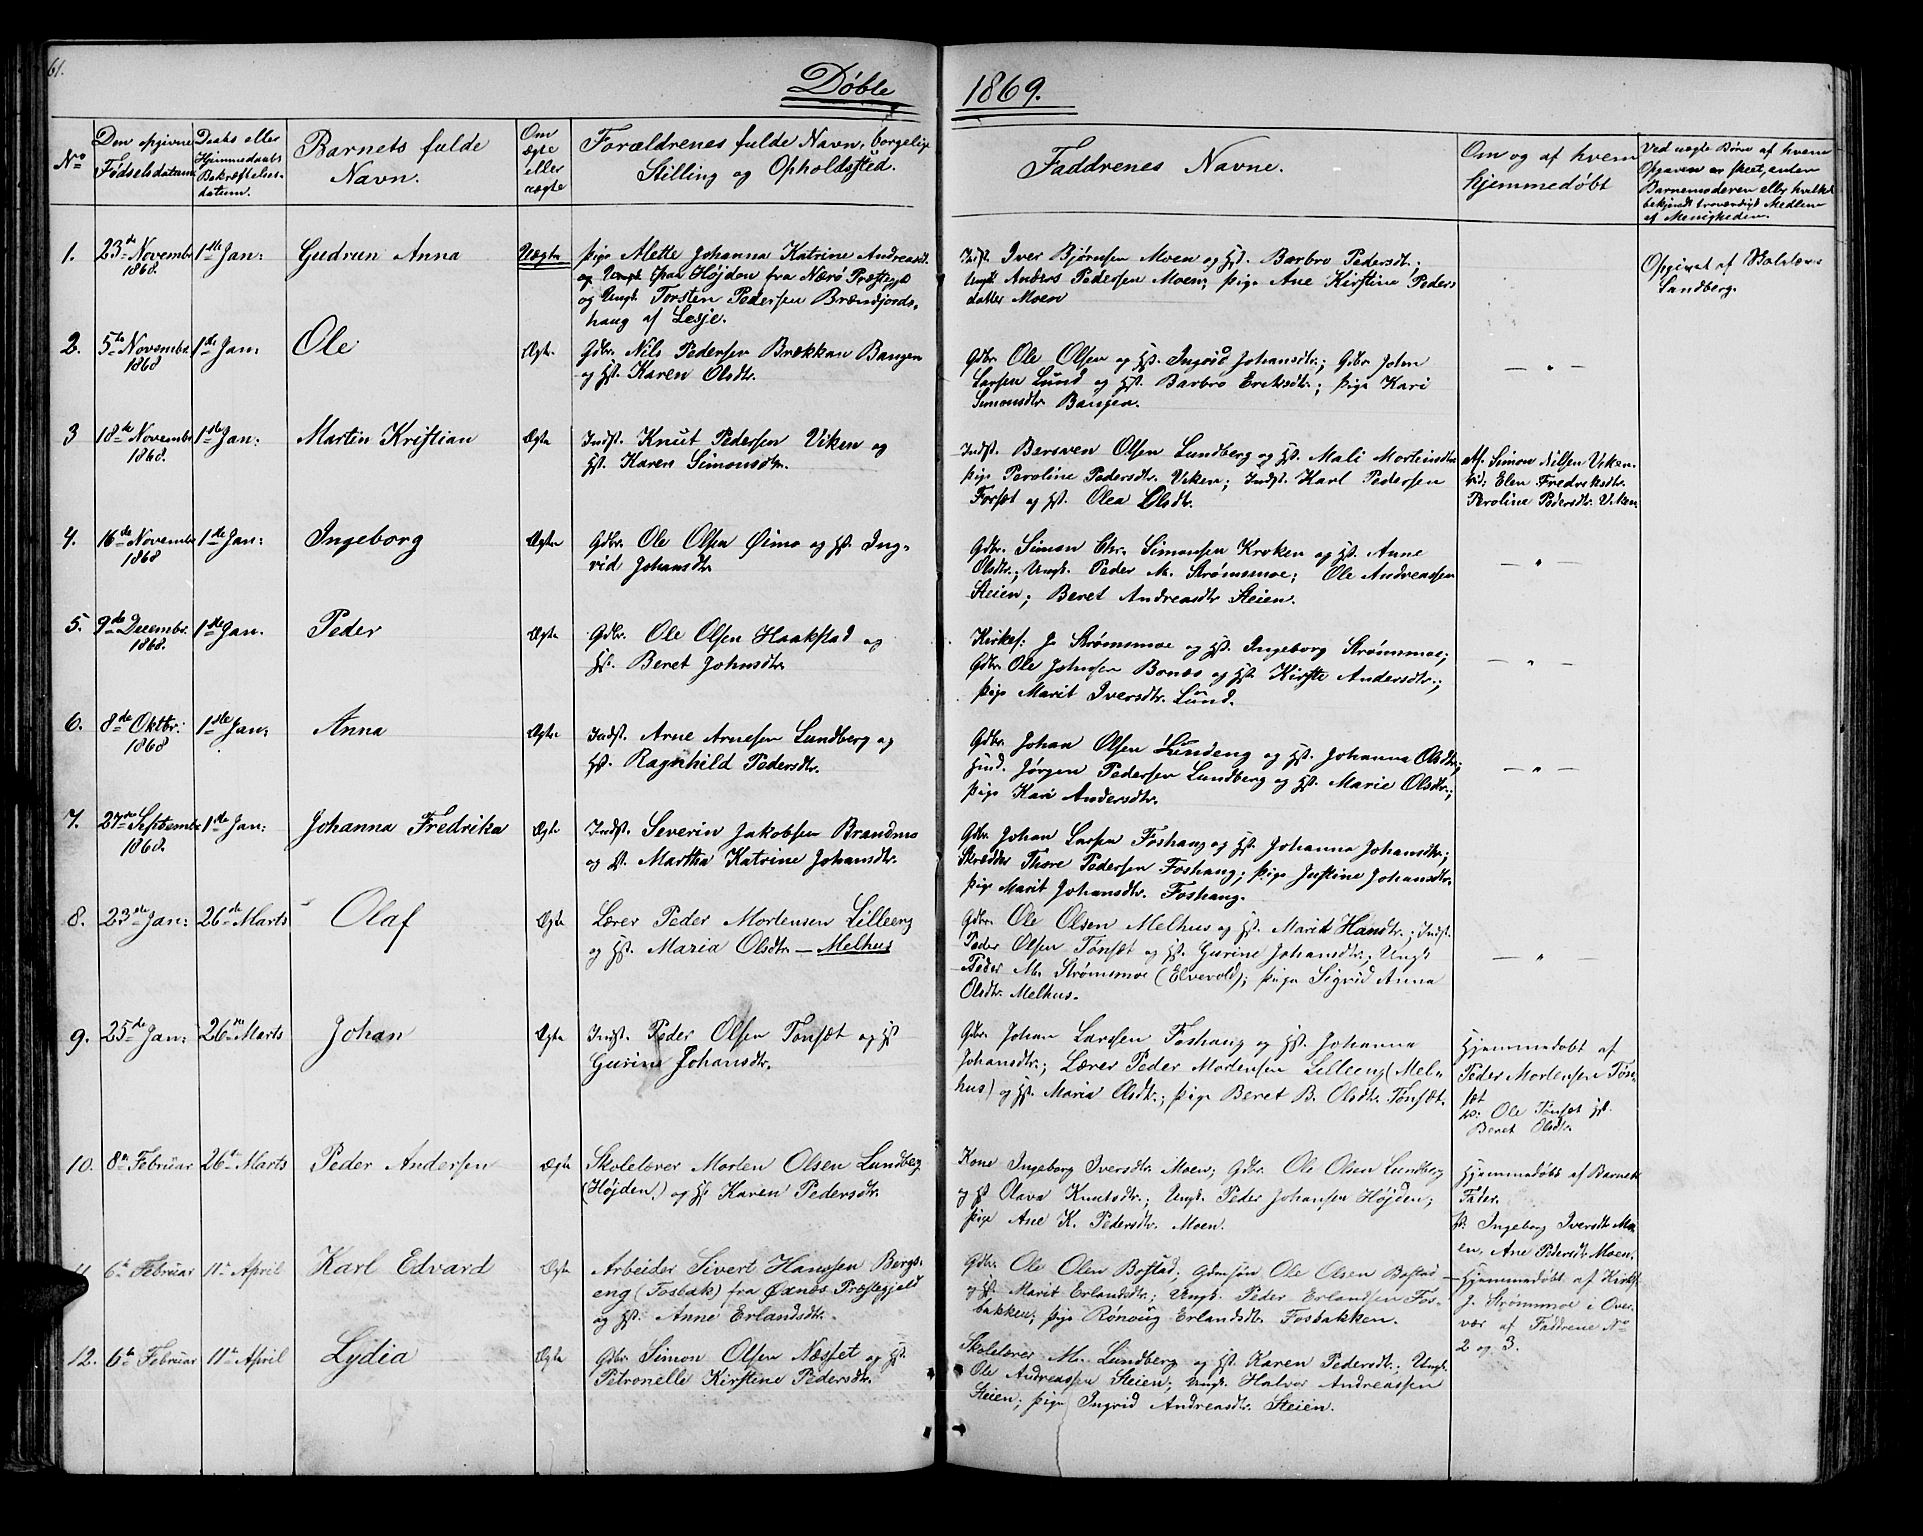 61.
Døbte 1869.
No
Den opgivne
Fødselsdatum
Daabs eller
Hjemmedaabs
Bekræftelses-
datum.
Barnets fulde
Navn.
Om
ægte
eller
uægte
Forældrenes fulde Navn, borgelige
Stilling og Opholdssted.
Faddrenes Navne.
Om og af hvem
hjemmedøbt
Ved uægte Børn af hvem
Opgaven er skeet, enten
Barnemoderen eller hvilket
bekjendt troværdigt Medlem
af Menigheden.
1. 23de Novembr 1868. 1ste Jan: Gudrun Anna Uægte
Pige Mette Johanna Katrine Andreasd.
Højden fra Nærø Præstegjd
og Ungk. Torsten Pedersen Brændjords-
haug af Lesje.
Indst. Iver Bjørnsen Moen og Hst. Barbro Pedersdt.;
Ungk. Anders Pedersen Moen; Pige Ane Kirstine Peders
datter Moen
Opgivet af
Sandberg.
2. 5te Novembr. 1868 1ste Jan: Ole Ægte
Gdbr. Nils Pedersen Brækkan Bangen
og Hst. Karen Olsdtr.
Gdbr. Ole Olsen og Hst. Ingrid Johansdtr.; Gdbr John
Larsen Lund og Hst. Barbro Eriksdtr.; Pige Kari
Simonsdtr. Bangen.
— " —
3 18de Novembr 1868. 1ste Jan: Martin Kristian Ægte
Indst. Knut Pedersen Viken og
Hst. Karen Simonsdtr.
Indst. Bersven Olsen Lundberg og Hst. Mali Mortensdtr
Pige Peroline Pedersdtr. Viken; Indst. Karl Pedersen
Forsæt og Hst. Olea Olsdtr.
Af. Simon Nilsen Viken.
Vid; Elen Fredriksdtr.
Peroline Pedersdtr. Viken
4. 16de Novembr 1868 1ste Jan: Ingeborg Ægte
Gdbr. Ole Olsen Øimo og Hst. Ing-
rid Johansdtr.
Gdbr. Simon Chr. Simonsen Kroken og Hst. Anne
Olsdtr.; Ungk. Peder M. Strømsmoe; Ole Andreassen
Steien; Beret Andreasdtr Steien.
— " —
5. 9de Decembr. 1868. 1ste Jan. Peder Ægte
Gdbr. Ole Olsen Haakstad og
Hst. Beret Johnsdtr.
Kirkes: J. Strømsmoe og Hst. Ingeborg Strømsmoe;
Gdbr. Ole Johnsen Bonæs og Hst. Kirste Andersdtr.;
Pige Marit Iversdtr. Lund.
— " —
6. 8de Oktbr: 1868 1ste Jan: Anna Ægte
Indst. Arne Arnesen Lundberg og
Hst. Ragnhild Pedersdtr.
Gdbr. Johan Olsen Lundeng og Hst. Johanna Olsdtr;
Hmd. Jørgen Pedersen Lundberg og Hst. Marie Olsdtr.;
Pige Kari Andersdtr.
— " —
7. 27de Septembr 1868. 1ste Jan: Johanna Fredrika Ægte
Indst. Severin Jakobsen Brandmo
og Hst. Martha Katrine Johansdtr.
Gdbr. Johan Larsen Foshaug og Hst. Johanna Johansdtr.;
Skrædder Thore Pedersen Foshaug; Pige Justine Johansdtr.
Pige Marit Johansdtr. Foshaug.
8. 23de Jan: 26de Marts Olaf Ægte
Lærer Peder Mortensen Lilleeng
og Hst. Maria Olsdtr. — Melhus
Gdbr. Ole Olsen Melhus og Hst. Marit Hansdtr.; Indst.
Peder Olsen Tønsæt og Hst. Gurine Johansdtr.; Ungk
Peder M. Strømsmoe (Elvevold); Pige Sigrid Anna
Olsdtr. Melhus.
— " —
9. 25de Jan: 26de Marts Johan Ægte
Indst. Peder Olsen Tønsæt og Hst
Gurine Johansdtr.
Gdbr. Johan Larsen Foshaug og Hst. Johanna
Johansdtr.; Lærer Peder Mortensen Lilleeng (Mel-
hus) og Hst. Maria Olsdtr.; Pige Beret B. Olsdtr. Tønsæt.
Hjemmedøbt af
Peder Mortensen Tøn-
sæt
V: Ole Tønsæt Hst.
Beret Olsdtr.
10. 8de Februar 26de Marts Peder Andersen Ægte
Skolelærer Morten Olsen Lundberg
(Højden.) og Hst Karen Pedersdtr.
Kone Ingeborg Iversdtr. Moen; Gdbr. Ole Olsen Lundberg
og Hst Olava Knutsdtr.; Ungk. Peder Johansen Højden;
Pige Ane K. Pedersdtr. Moen.
Hjemmedøbt af Barnets
Fader.
V: Ingeborg Iversdtr Mo
en, Ane Pedersdtr Moen.
11. 6te Februar 11te April Karl Edvard Ægte
Arbeider Sivert Hanssen Bergs-
eng (Fosbak) fra Øxnæs Præstegjeld
og Hst. Anne Erlandsdtr.
Gdbr. Ole Olsen Bostad. Gdmsøn Ole Olsen Bostad
og Hst. Marit Erlandsdtr.; Ungk. Peder Erlandsen Fos-
bakken; Pige Rønnoug Erlandsdtr. Fosbakken.
Hjemmedøbt af Kirks.
J. Strømmoe i Over-
vær af Faddrene No
2 og 3.
12. 6te Februar 11te April Lydia Ægte
Gdbr. Simon Olsen Næsset og Hst.
Petronelle Kirstine Pedersdtr.
Skolelærer M. Lundberg og Hst. Karen Pedersdtr.; Ungk.
Ole Andreassen Steien; Ungk. Halvor Andreassen
Steien; Pige Ingrid Andreasdtr. Steien.